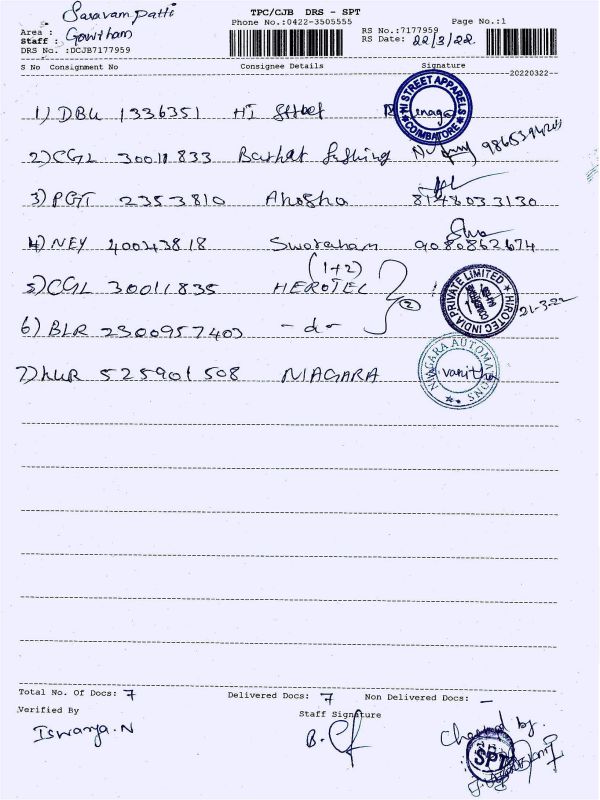 Saravampatti
TPC/CJB DRS - SPT
Phone No.:0422-3505555
Page No.:1
Area :
Staff : Gowtham
DRS No. :DCJB7177959
RS No.:7177959
RS Date: 22/3/22
S No Consignment No Consignee Details Signature
--20220322--
1) DBU 1336351 HI Street
HI STREET APPARELS
COIMBATORE
2) CGL 30011833 9865394201
3) PGT 2353810 8148033130
4) NEY 40043818 9080862674
(1+2)
5) CGL 30011835 HEROTEC
HIROTEC INDIA PRIVATE LIMITED
21-3-22
2
6) BLR 2300957403 -do-
7) 525901508 NIAGARA
NIAGARA AUTOMATIONS
vanitha
Total No. Of Docs: 7 Delivered Docs: 7 Non Delivered Docs: -
Verified By Staff Signature
Iswarya.N
Checked by.
SPT